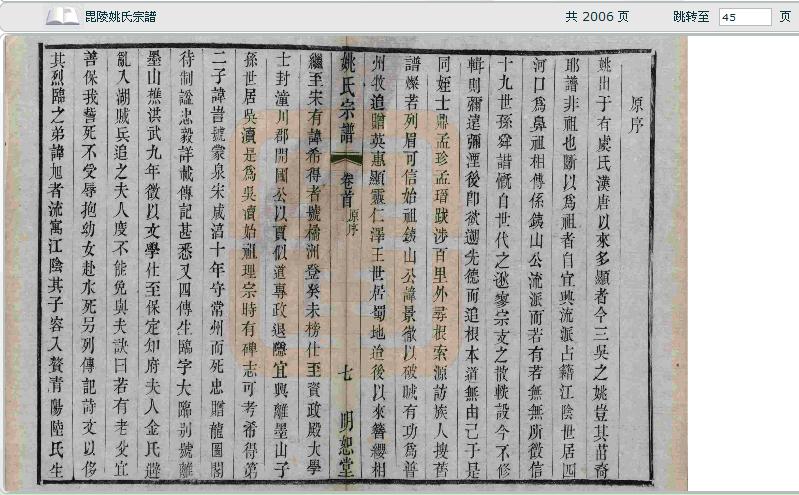 毘陵姚氏宗譜
共 2006 页
跳转至 45 页
原序
姚出于有虞氏漢唐以來多顯者今三吳之姚豈其苗裔
耶譜非祖也斷以爲祖者自宜興流派占籍江陰世居四
河口爲鼻祖相傳係銕山公流派而若有若無無所徵信
十九世孫舜諧慨自世代之逖寥宗支之散軼設今不修
輯則彌遠彌湮後卽欲遡先德而追根本道無由己于是
同姪士鼎孟珍孟瑨跋涉百里外尋根索源訪族人搜舊
譜燦若列眉可信始祖銕山公諱景徹以破賊有功爲普
州牧追贈英惠顯靈仁澤王世居蜀地迨後以來簪纓相
姚氏宗譜
卷首
原序
七
明恕堂
繼至宋有諱希得者號橘洲登癸未榜仕至資政殿大學
士封潼川郡開國公以賈似道專政退隱宜興離墨山子
孫世居吳瀆是爲吳瀆始祖理宗時有碑志可考希得第
二子諱訔號蒙泉宋咸淳十年守常州而死忠贈龍圖閣
待制諡忠毅詳載傳記甚悉又四傳生臨字大臨別號離
墨山樵洪武九年徵以文學仕至保定知府夫人金氏避
亂入湖賊兵追之夫人度不能免與夫訣曰若有老父宜
善保我誓死不受辱抱幼女赴水死另列傳記詩文以侈
其烈臨之弟諱旭者流寓江陰其子容入贅青陽陸氏生